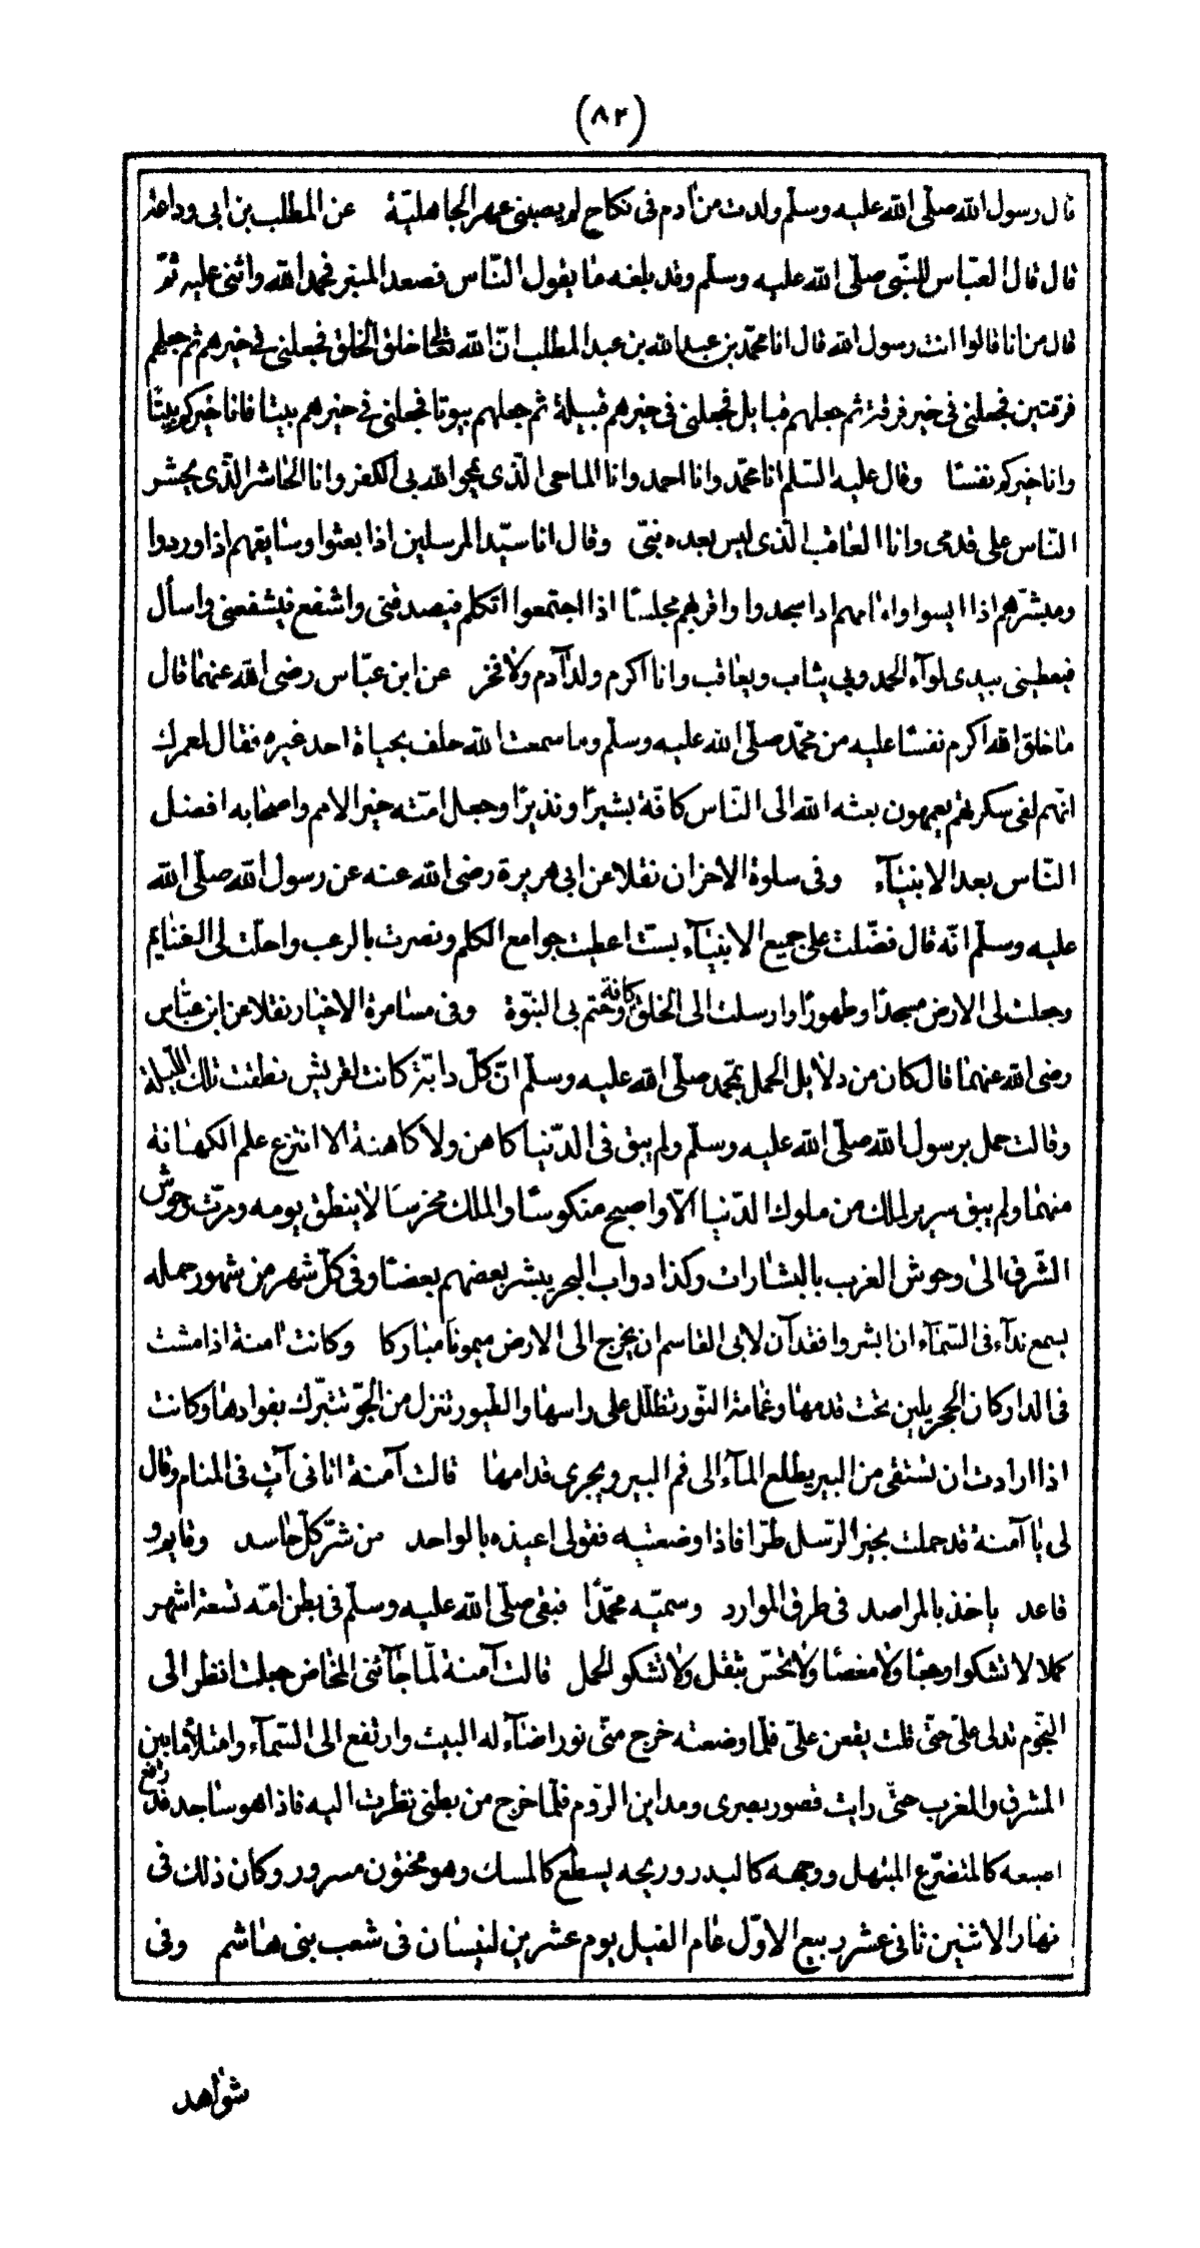 (٨٢)
قال رسول الله صلّى الله عليه وسلّم ولدت من آدم فى نكاح لم يصبنى عهر الجاهليّة عن المطلب بن ابى وداعة
قال قال العبّاس للنبّى صلّى الله عليه وسلّم وقد بلغه ما يقول النّاس فصعد المنبر فحمد الله واثنى عليه ثمّ
قال من انا قالوا انت رسول الله قال انا محمّد بن عبد الله بن عبد المطلب انّ الله تعالى خلق الخلق فجعلنى فى خيرهم ثم جعلهم
فرقتين فجعلنى فى خير فرقة ثم جعلهم قبايل فجعلنى فى خيرهم قبيلة ثم جعلهم بيوتا فجعلنى فى خيرهم بيتا فانا خيركم بيتًا
وانا خيركم نفسًا وقال عليه السّلم انا محمّد وانا احمد وانا الماحى الّذى يمحو الله بى الكفر وانا الحاشر الّذى يحشر
النّاس على قدمى وانا العاقب الّذى ليس بعده نبّى وقال انا سيّد المرسلين اذا بعثوا وسابقهم اذا وردوا
ومبشّرهم اذا ايسوا وامامهم اذا سجدوا واقربهم مجلسًا اذا اجتمعوا اتكلم فيصدقنى واشفع فيشفعنى واسأل
فيعطينى بيدى لوآء الحمد وبى يثاب ويعاقب وانا اكرم ولد آدم ولا فخر عن ابن عبّاس رضى الله عنهما قال
ما خلق الله اكرم نفسًا عليه من محمّد صلّى الله عليه وسلّم وما سمعت الله حلف بحياة احد غيره فقال لعمرك
انّهم لفى سكرتهم يعمهون بعثه الله الى النّاس كافّة بشيرًا ونذيرًا وجعل امّته خير الامم واصحابه افضل
النّاس بعد الانبيآء وفى سلوة الاحزان نقلا عن ابى هريرة رضى الله عنه عن رسول الله صلّى الله
عليه وسلّم انّه قال فضّلت على جميع الانبيآء بستّ اعطيت جوامع الكلم ونصرت بالرعب واحلّت لى الغنايم
وجعلت لى الارض مسجدًا وطهورًا وارسلت الى الخلق كافة وختم بى النبّوة وفى مسامرة الاخبار نقلا عن ابن عبّاس
رضى الله عنهما قال كان من دلايل الحمل بمحمد صلّى الله عليه وسلّم انّ كلّ دابّة كانت لقريش نطقت تلك اللّيلة
وقالت حمل برسول الله صلّى الله عليه وسلّم ولم يبق فى الدّنيا كاهن ولا كاهنة الا انتزع علم الكهانة
منهما ولم يبق سرير لملك من ملوك الدّنيا الّا واصبح منكوسًا والملك مخرسًا لا ينطق يومه ومرّت وحوش
الشّرق الى وحوش الغرب بالبشارات وكذا دواب البحر يبشر بعضهم بعضًا وفى كلّ شهر من شهور حمله
يسمع ندآء فى السّمآء ان ابشروا فقد آن لابى القاسم ان يخرج الى الارض ميمونًا مباركا وكانت آمنة اذا مشت
فى الدار كان الحجر يلين تحت قدمها وغمامة النّور تظلل على راسها والطّيور تنزل من الجّو تتبّرك بفوادها وكانت
اذا ارادت ان تستقى من البير يطلع المآء الى فم البير ويجرى قدامها قالت آمنة اتانى آتٍ فى المنام وقال
لى يا آمنة قد حملت بخير الرّسل طرّا فاذا وضعتيه فقولى اعيذه بالواحد من شرّ كلّ حاسد وقايم و
قاعد ياخذ بالمراصد فى طرق الموارد وسمّيه محمّدًا فبقى صلّى الله عليه وسلّم فى بطن امّه تسعة اشهر
كملا لا تشكو وجعًا ولا مغصًا ولا تحسّ بثقل ولا تشكو الحمل قالت آمنة لمّا جآءنى المخاض جعلت انظر الى
النّجوم تدلى علىّ حتّى قلت يقعن علىّ فلمّا وضعته خرج منّى نور اضآء له البيت وارتفع الى السّمآء وامتلأ ما بين
المشرق والمغرب حتّى رايت قصور بصرى ومداين الرّوم فلّما خرج من بطنى نظرت اليه فاذا هو ساجد قد رفع
اصبعه كالمتضرّع المبتهل ووجهه كالبدر وريحه يسطع كالمسك وهو مختون مسرور وكان ذلك فى
نهار الاثنين ثانى عشر ربيع الاوّل عام الفيل يوم عشرين لنيسان فى شعب بنى هاشم وفى
شواهد